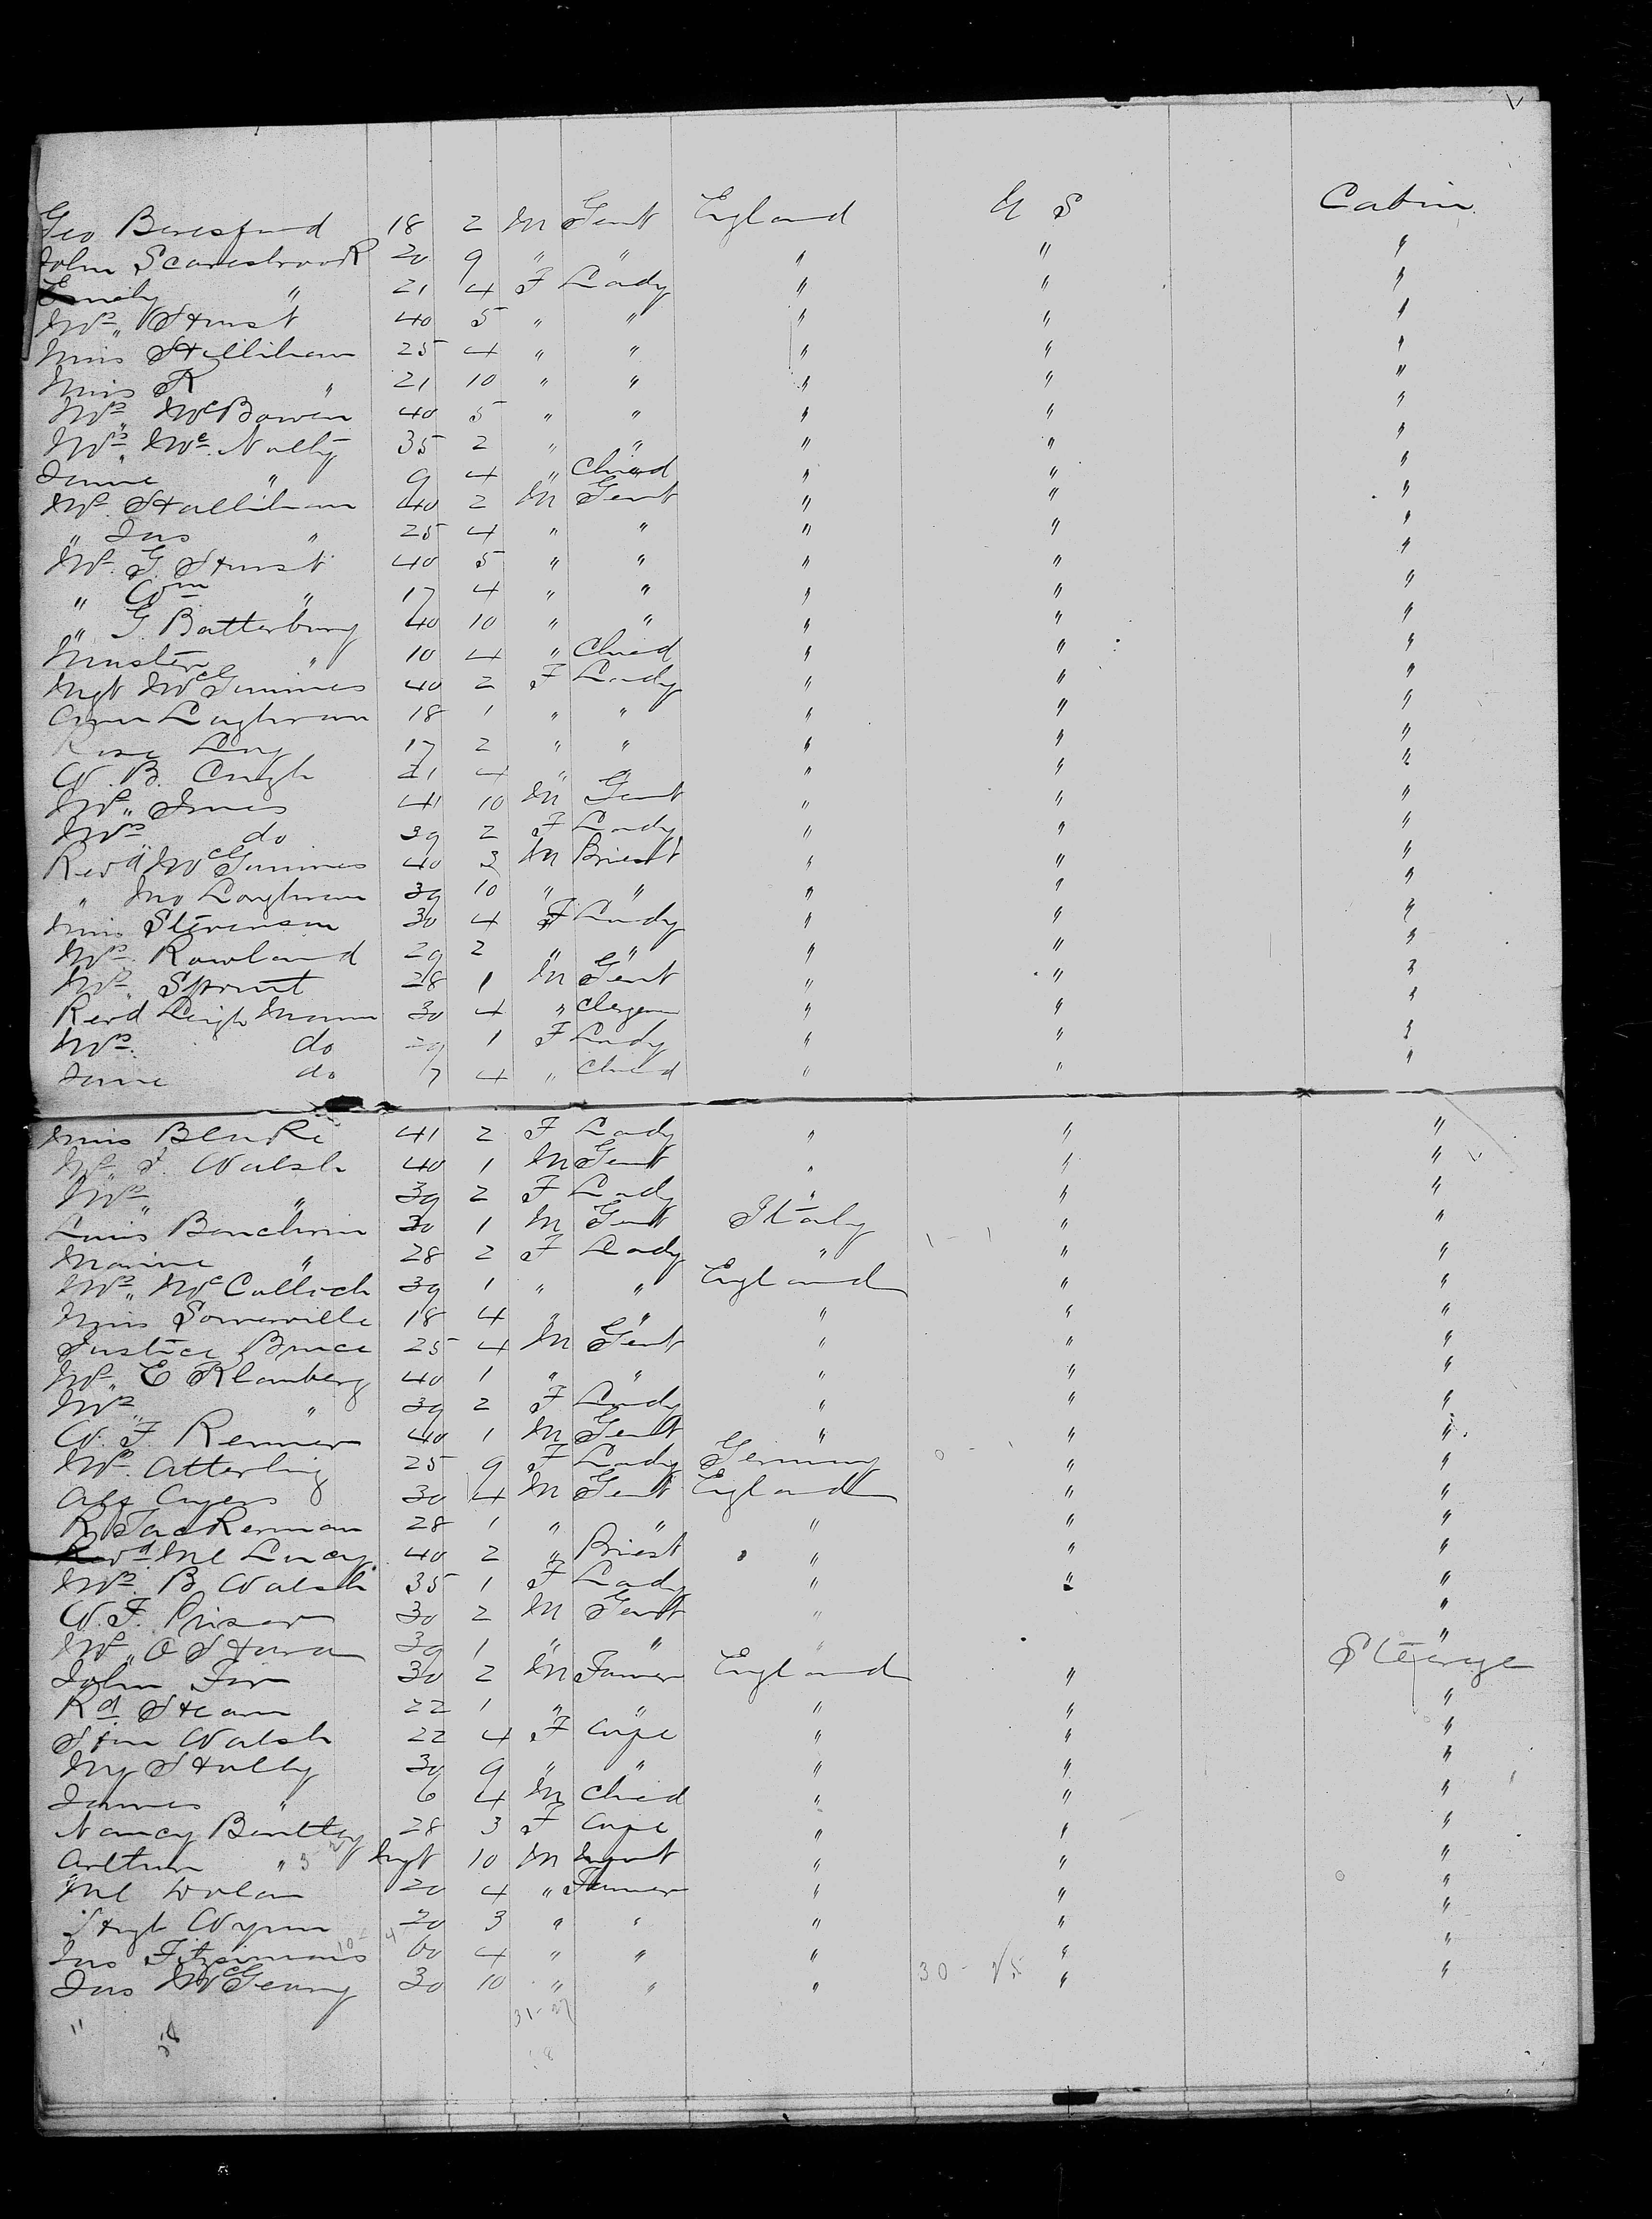 Geo Beresford 18 2 M Gent England U S Cabin
John Scaresbrook 20 9 " " " " "
Emily " 21 4 F Lady " " "
Mrs Hurst 40 5 " " " " "
Miss Hallihan 25 4 " " " " "
Miss K " 21 10 " " " " "
Mrs McBowen 40 5 " " " " "
Mrs Mc Nally 35 2 " " " " "
Janie " 9 4 " Child " " "
Mr Hallihan 40 2 M Gent " " "
" Jas " 25 4 " " " " "
Mr G Hurst 40 5 " " " " "
" Wm " 17 4 " " " " "
" G. Batterbury 40 10 " " " " "
Master " 10 4 " Child " " "
Mgt McGuinnes 40 2 F Lady " " "
Ann Loghran 18 1 " " " " "
Rose Long 17 2 " " " " "
W. B. Cough 21 4 " " " " "
Mr Innes 41 10 M Gent " " "
Mrs do 39 2 F Lady " " "
Revd McGuinnes 40 3 M Priest " " "
" Jno Loughran 39 10 " " " " "
Miss Stevenson 30 4 F Lady " " "
Mrs Rowland 29 2 " " " " "
Mr Sprout 28 1 M Gent " " "
Revd Leigh Mann 30 4 " Clergm " " "
Mrs do 29 1 F Lady " " "
Janie do 7 4 " Child " " "
Miss Blake 41 2 F Lady " " "
Mr J. Walsh 40 1 M Gent " " "
Mrs " 39 2 F Lady " " "
Louis Bonchrin 30 1 M Gent Italy " "
Marine " 28 2 F Lady " " "
Mrs McCulloch 39 1 " " England " "
Miss Somerville 18 4 " " " " "
Justice Bruce 25 4 M Gent " " "
Mr E Klamberg 40 1 " " " " "
Mrs " 39 2 F Lady " " "
W. F. Renner 40 1 M Gent " " "
Mrs Atterling 25 9 F Lady Germany " "
Alf Ayers 30 4 M Gent England " "
R Jackerman 28 1 " " " " "
Revd Ml Lucey 40 2 " Priest " " "
Mrs B Walsh 35 1 F Lady " " "
W. F. Prisar 30 2 M Gent " "
Mr O'Hara 39 1 " " " "
John Fox 30 2 M Farmer England " Steerage
Rd Hearn 22 1 " " " " "
Hon Walsh 22 4 F Wife " " "
My Hally 30 9 " " " " "
James " 6 4 M Child " " "
Nancy Bentley 28 3 F Wife " " "
Arthur " Inft 10 M Infant " " "
Ml Dolan 20 4 " Farmer " " "
Hugh Wynn 20 3 " " " " "
Jas Fitzsimons 60 4 " " " " "
Jas McGeary 30 10 " " " " "